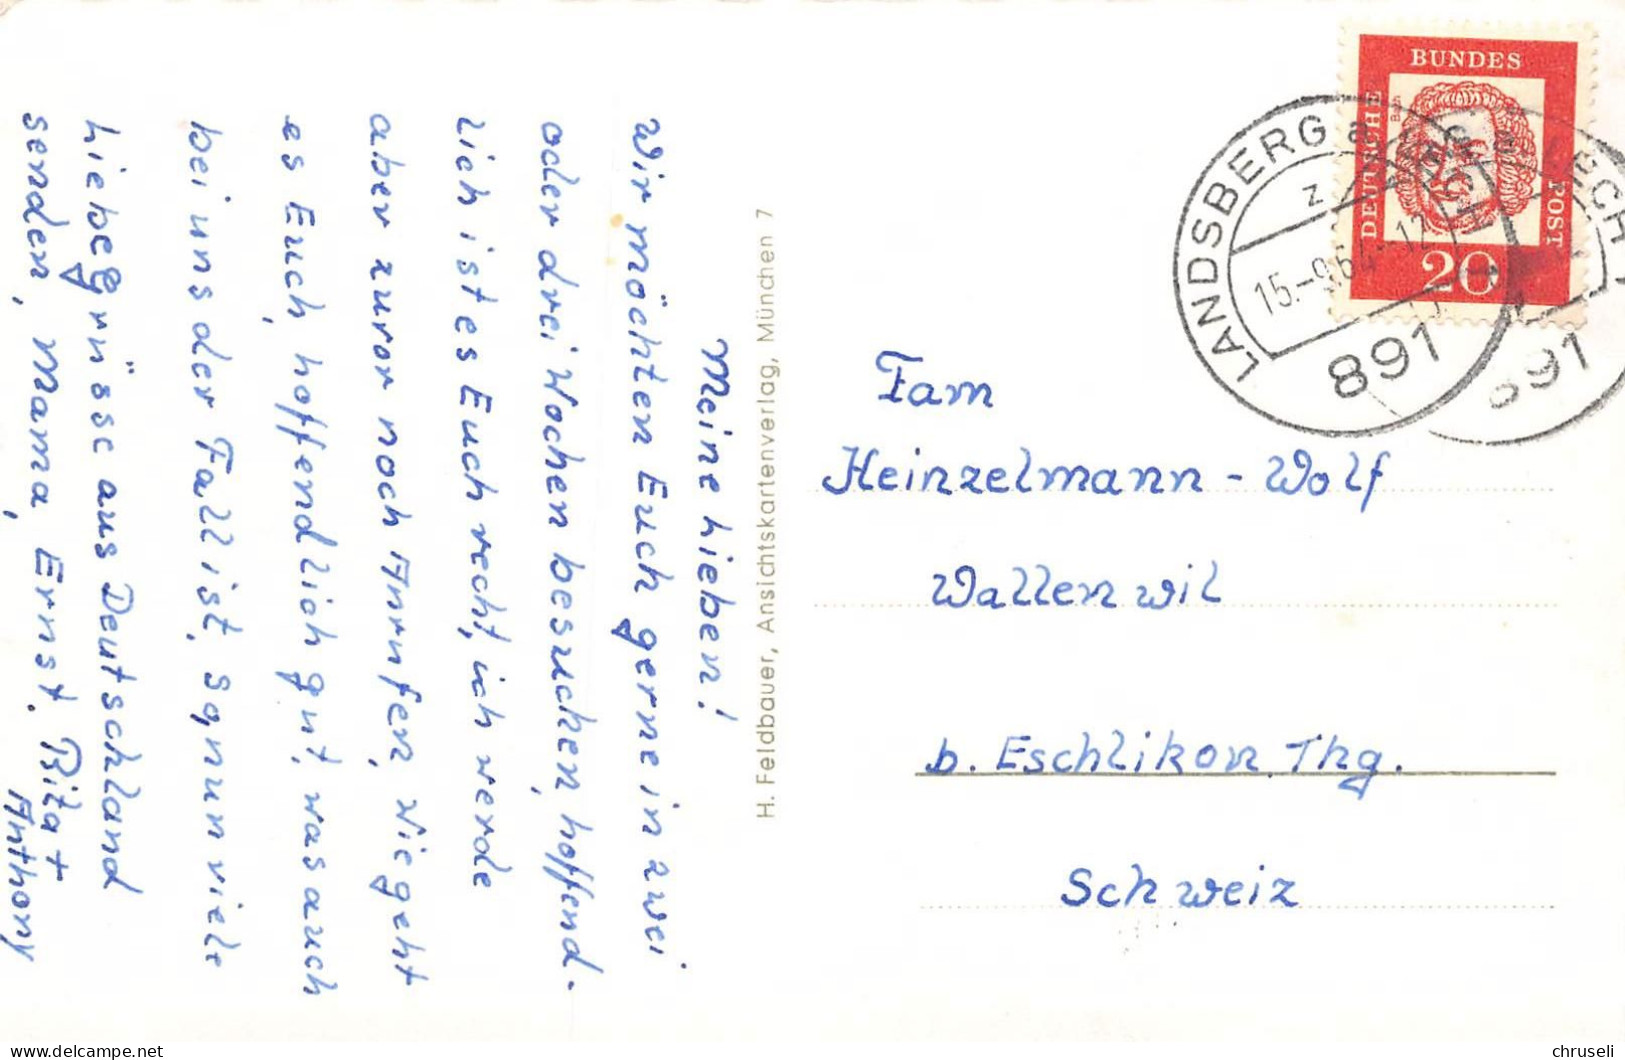 Meine lieben!
Wir möchten Euch gerne in zwei
oder drei Wochen besuchen, hoffend-
lich ist es Euch recht, ich werde
aber zuvor noch Anrufen, wie geht
es Euch, hoffendlich gut, was auch
bei uns der Fall ist, so, nun viele
liebe grüsse aus Deutschland
senden, Mama, Ernst. Rita +
Anthony
H. Feldbauer, Ansichtskartenverlag, München 7
DEUTSCHE
BUNDES
POST
20
LANDSBERG a. LECH
15.-9.64.-12
891
891
Fam
Heinzelmann - Wolf
Wallenwil
b. Eschlikon Thg.
Schweiz
chruseli